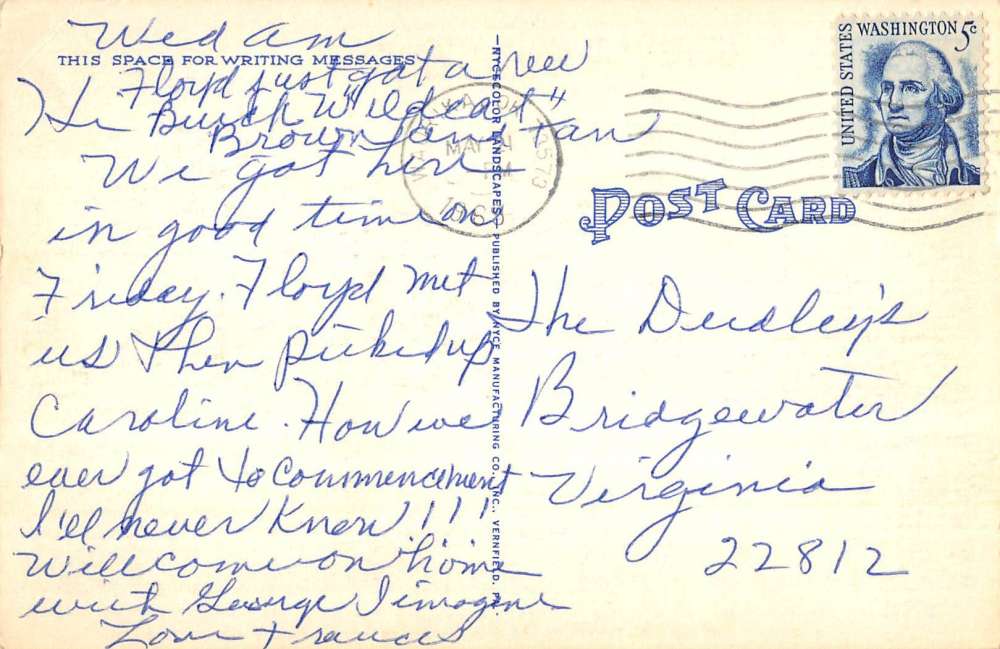 Wed am
THIS SPACE FOR WRITING MESSAGES
Floyd just got a new
Buick "Wildcat"
Brown and tan
Hi
We got here
in good time on
Friday. Floyd met
us & then picked up
Caroline. How we
ever got to commencement
I'll never know!!!
Will come on home
with George I imagine
Love Frances
NYCECOLOR LANDSCAPES PUBLISHED BY NYCE MANUFACTURING CO., INC., VERNFIELD, PA.
MAY
PM
UNITED STATES
WASHINGTON 5c
POST CARD
The Dudley's
Bridgewater
Virginia
22812